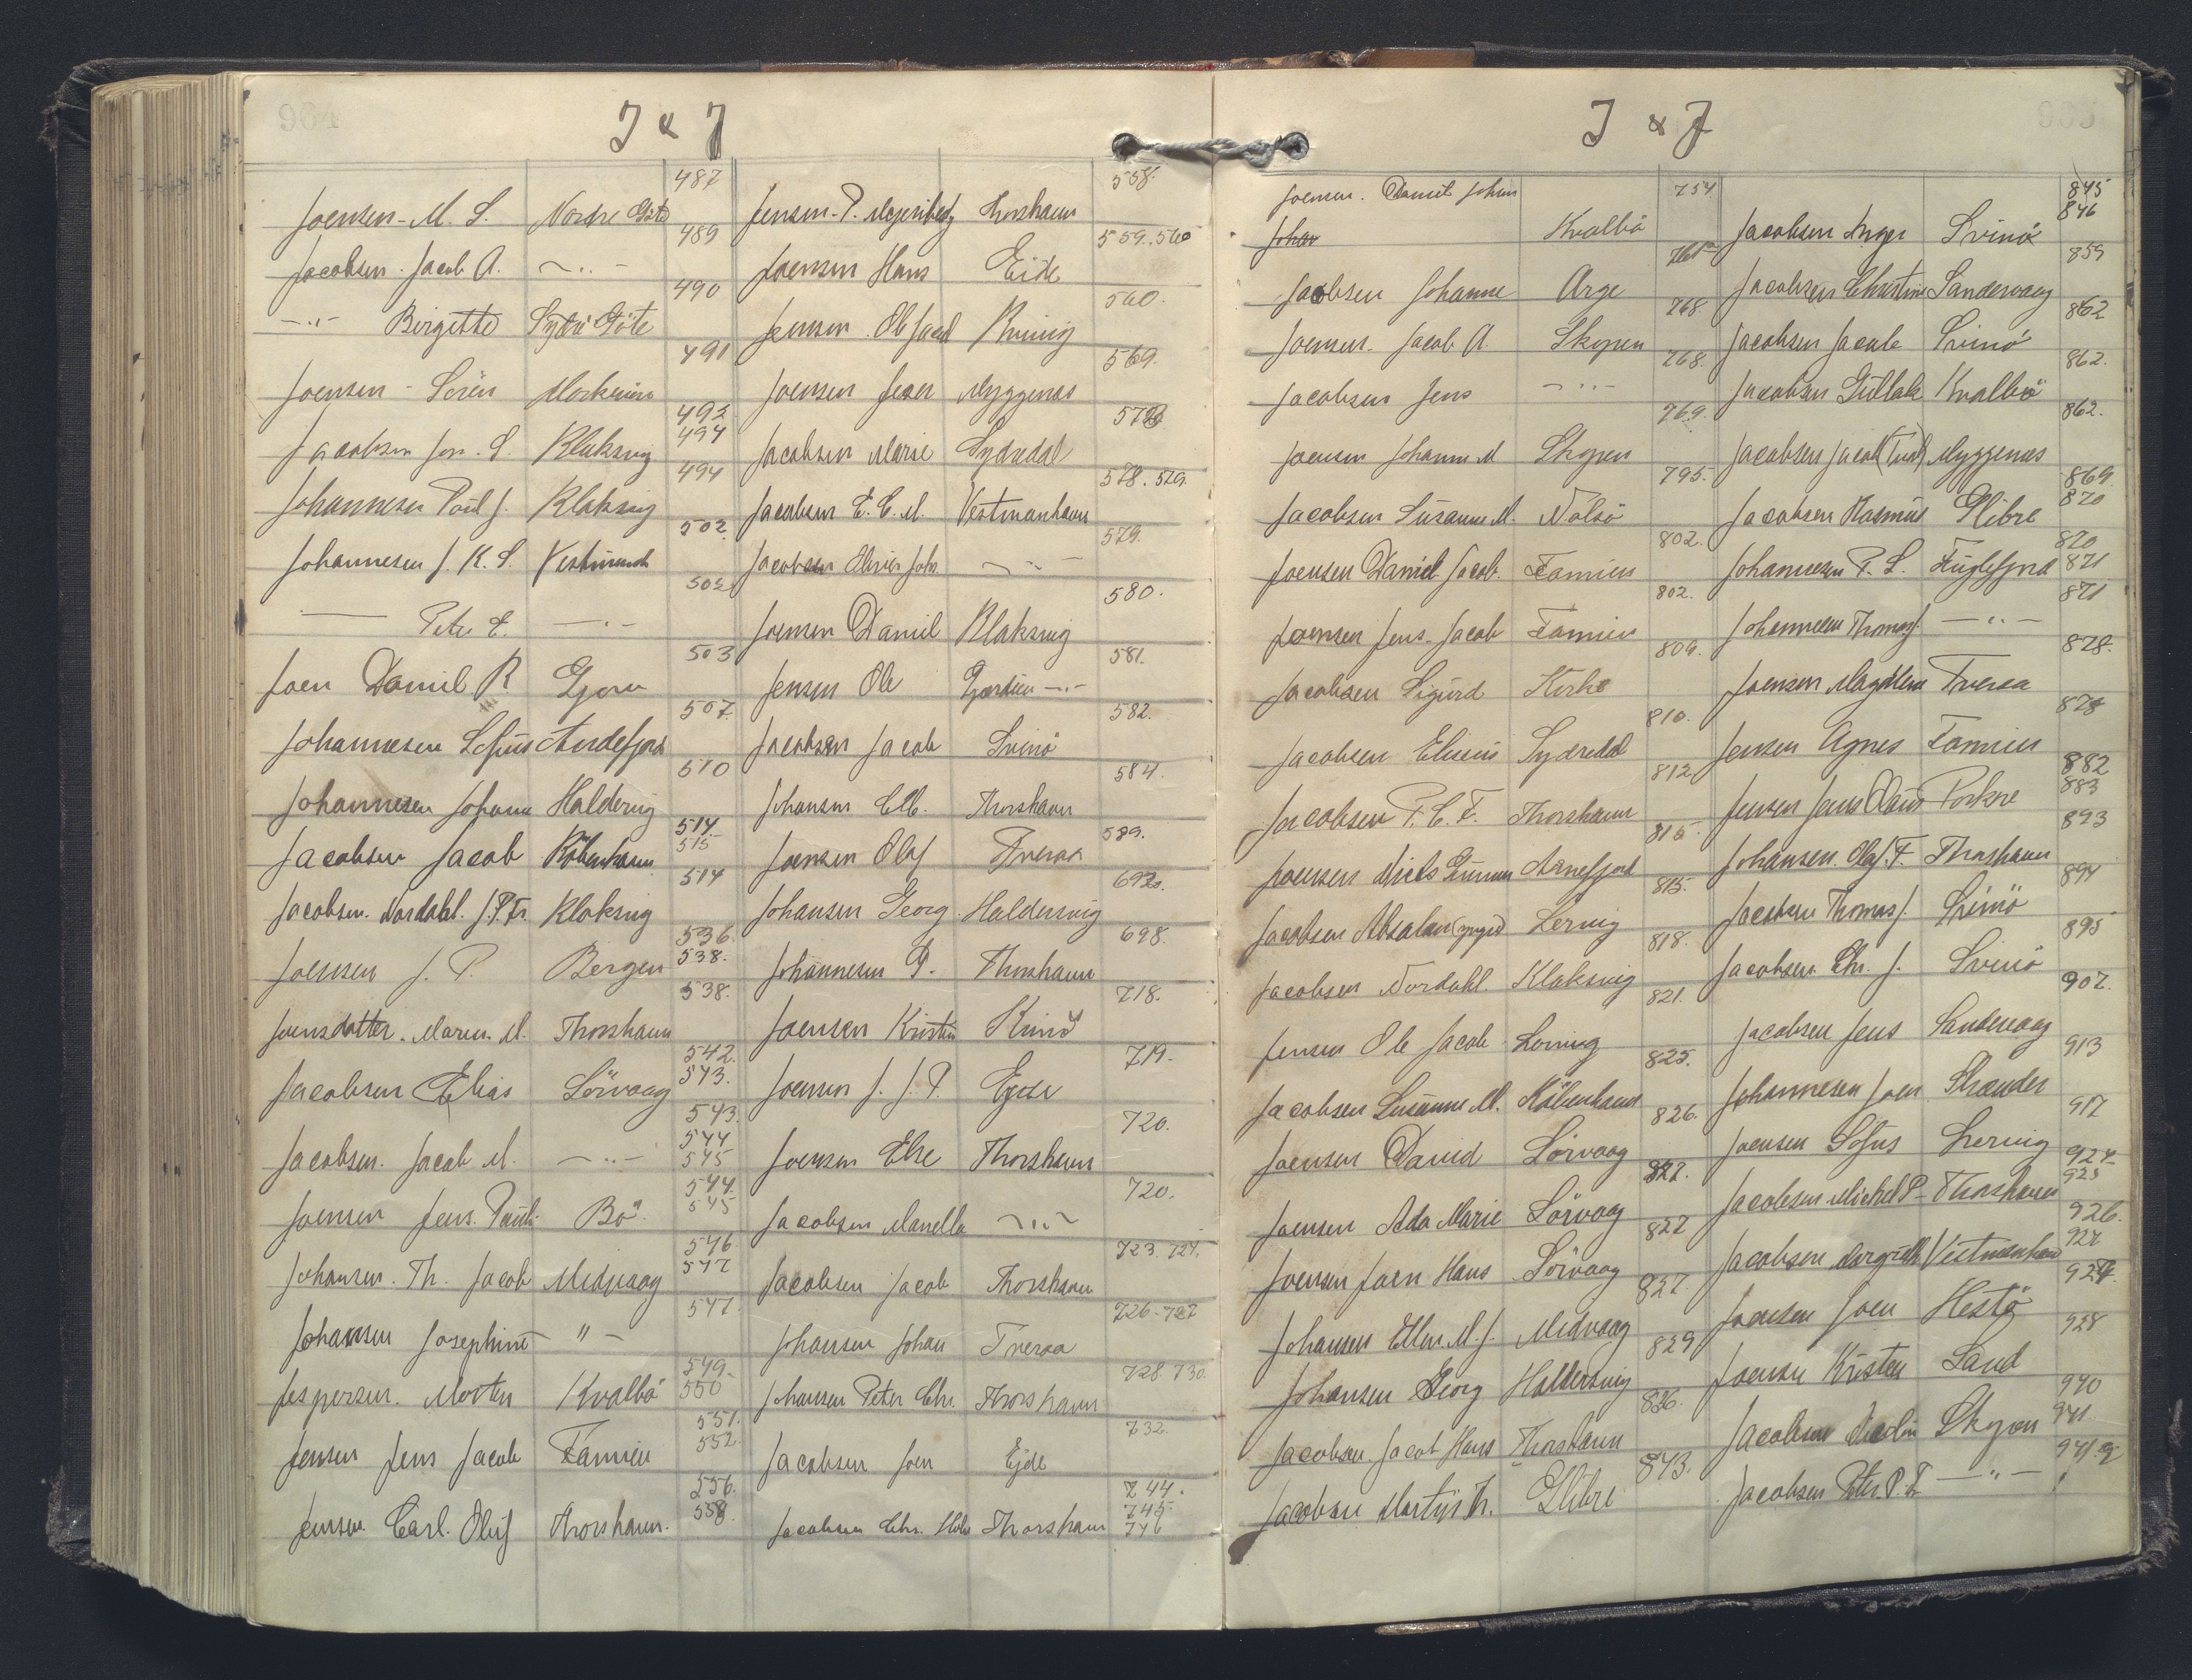 I & J
487
Joensen - M. S. Nordre Göte 489
Jacobsen. Jacob A. -"- 490
-"- Birgitte Sydr Göte 491
Joensen - Sören 492
494
Jacobsen Jon. S. Klaksvig 494
Johannesen Poul J. Klaksvig 502.
Johannesen J. K. S. 502
— Peter E. -"- 503
Joen Daniel R Gjov 507
Johannesen Sofus Andefjord 510
Johannesen Johan Haldervig 514.
515
Jacobsen Jacob Köbenhavn 514
Jacobsen. Nordahl. J. P. Fr. Klaksvig 536.
538.
Joensen J. P. Bergen 538.
Joensdatter. Maren. M. Thorshavn 542.
543.
Jacobsen Elias Sörvaag 543.
544
545
Jacobsen. Jacob M. -"- 544.
545
Joensen Jens. Pauli Bö 546.
547
Johansen. Th. Jacob Midvaag 547.
Johansen Josephine " - 549.
550
Jespersen. Morten Kvalbö 551.
552.
Jensen Jens Jacob Famien 556.
558.
Jensen Carl. Oluf Thorshavn.
558.
Jensen. P. Thorshavn 559.560
Joensen Hans Eide 560.
Jensen. Ole Jacob 569.
Joensen Myggenæs 578
Jacobsen Marie Sydredal 578.579.
Jacobsen E. C. M. Vestmanhavn 579.
Jacobsen Joh. -"- 580.
Joensen Daniel Klaksvig 581.
Jensen Ole -"- 582.
Jacobsen Jacob Svinö 584.
Johansen Thorshavn 589.
Joensen Olaf Tveraa 692.
Johansen Georg. Haldersvig 698.
Johannesen P. Thorshavn 718.
Joensen Kristin 719.
Joensen J. J. P. Ejde 720.
Joensen Else Thorshavn 720.
Jacobsen Manella -"- 723.724.
Jacobsen Jacob Thorshavn 726-727
Johansen Johan Tveraa 728.730
Johansen Peter Chr. Thorshavn 732
Jacobsen Joen Ejde 744.
745
746
Jacobsen Chr. Holm Thorshavn
I & J
Joensen. Daniel Johan 754
Johan Kvalbö 765
Jacobsen Johanne Arge 768
Joensen. Jacob A. Skopen 768.
Jacobsen Jens -"- 769.
Joensen Johanne M Skopen 795.
Jacobsen Susanne M. Nolsö 802.
Joensen Daniel Jacob. Famien 802.
Joensen Jens Jacob Famien 809.
Jacobsen Sigurd Kirke 810.
Jacobsen Sydredal 812
Jacobsen P. C. F. Thorshavn 815.
Joensen Niels Gunnar Arnefjord 815.
Jacobsen Absalon Lervig 818.
Jacobsen Nordahl. Klaksvig 821.
Jensen Ole Jacob 825.
Jacobsen Susanne M. Köbenhavn 826.
Joensen David Sörvaag 827.
Joensen Ada Marie Sörvaag 827
Joensen Joen Hans Sörvaag 827.
Johansen Ellen. M. J. Midvaag 829
Johansen Georg Haldersvig 836.
Jacobsen Jacob Hans Thorshavn 843.
Jacobsen Th. Glibre
845
846
Jacobsen Inger Svinö 859
Jacobsen Christine Sandevaag 862
Jacobsen Jacob Svinö 862.
Jacobsen Kvalbö 862.
Jacobsen Jacob Myggenæs 869
870
Jacobsen Rasmus Glibre 870
871
Johannesen P. L. Fuglefjord 871
Johannesen Thomas J. -"- 878.
Joensen Magdlena Tveraa 878
Jensen Agnes Famien 882
883
Jensen Jens Porkere 893
Johansen. Olaf. F. Thorshavn 894
Jacobsen Thomas J. Svinö 895
Jacobsen. Chr. J. Svinö 907.
Jacobsen Jens Sandevaag 913
Johannesen Joen Strænder 917
Joensen Sofus Lervig 924
925
Jacobsen Michel P- Thorshavn 926.
927
Jacobsen Vestmanhavn 927.
Joensen Joen Hestö 928
Joensen Kristen Sand 940
941.
Jacobsen Skopen 941.
Jacobsen Petr. P. F. -"-